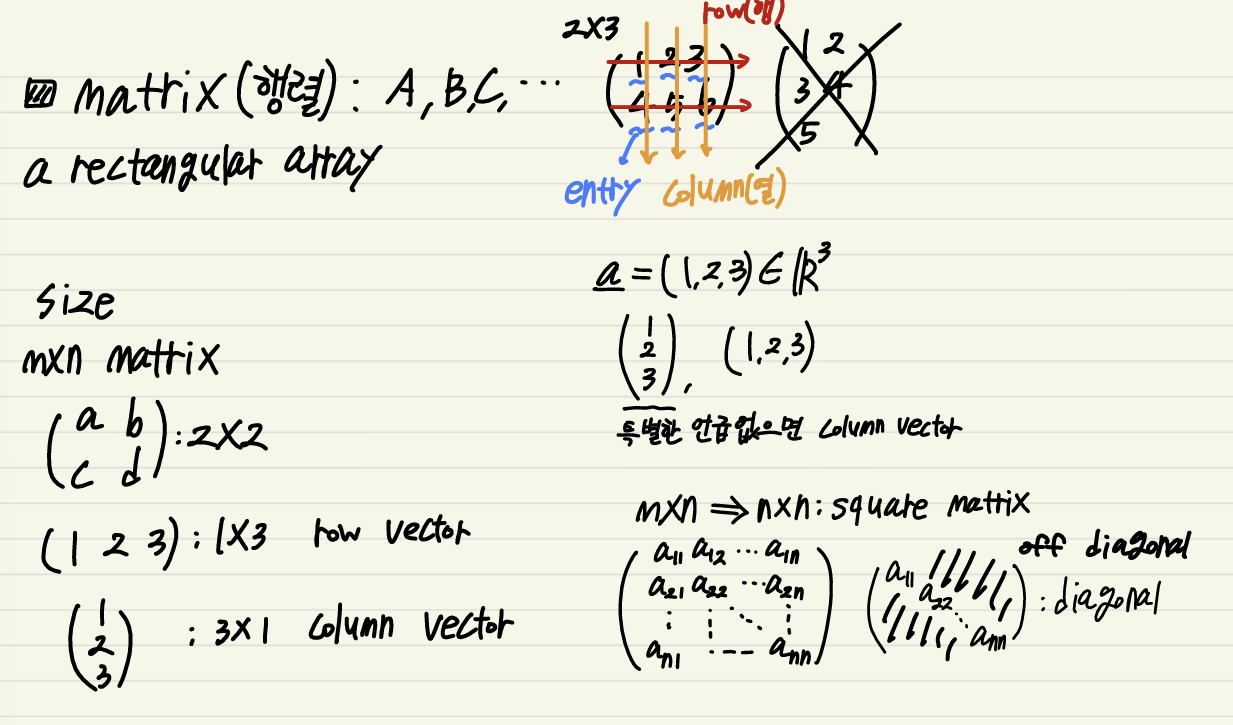 matrix (행렬) : A, B, C, ...
a rectangular array
2X3
row(행)
( 1 2 3 )
( 4 5 6 )
entry column(열)
( 1 2 )
( 3 4 )
( 5 )
size
mxn matrix
( a b ) : 2X2
( c d )
( 1 2 3 ) ; 1X3 row vector
( 1 )
( 2 ) ; 3X1 column vector
( 3 )
a = (1, 2, 3) ∈ ℝ³
( 1 )
( 2 ) , (1, 2, 3)
( 3 )
특별한 언급없으면 column vector
mxn ⇒ nxn : square matrix
( a₁₁ a₁₂ ... a₁n )
( a₂₁ a₂₂ ... a₂n )
( ⋮ ⋮ ⋱ ⋮ )
( an₁ ... ann )
off diagonal
( a₁₁ )
( a₂₂ ) : diagonal
( ⋱ ann )